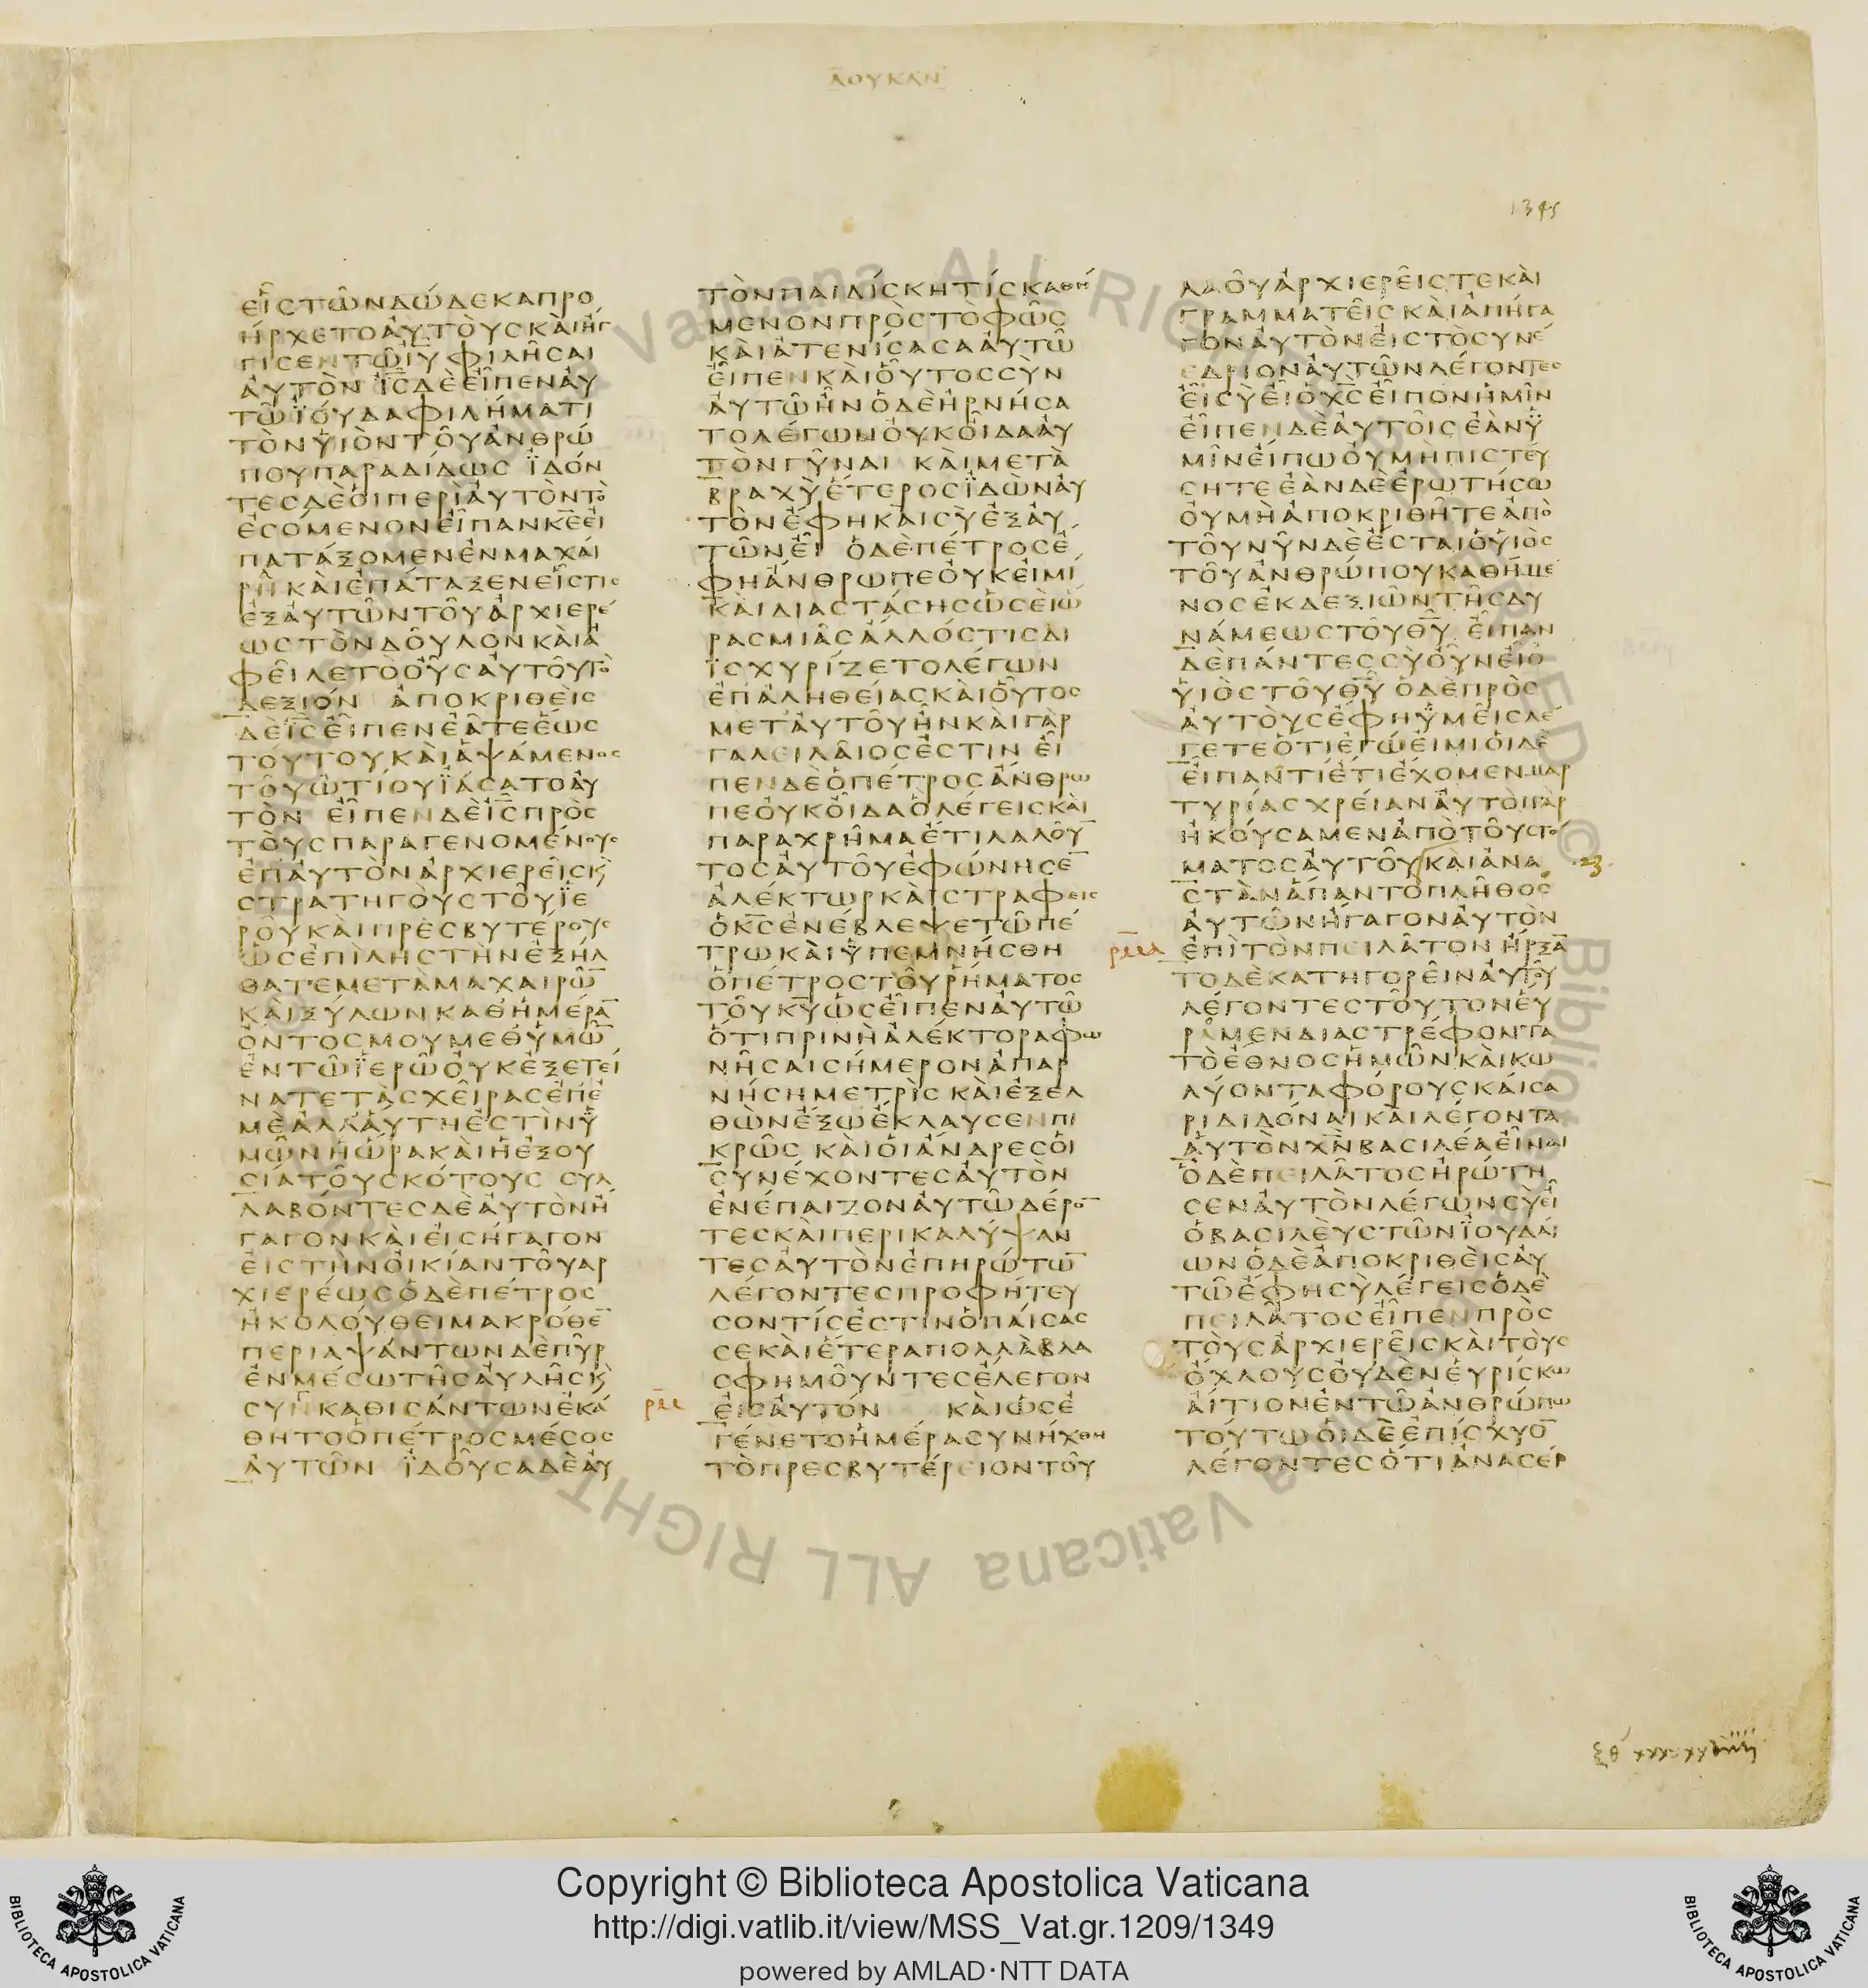 ΛΟΥΚΑΝ
1345
ΕἾΣΤΩ͂ΝΔΏΔΕΚΑΠΡΟ
ΉΡΧΕΤΟΑΥΤΟΥΣΚΑΙΗΓ
ΓΙΣΕΝΤΩΙΥΦΙΛΗΣΑΙ
ΑΥΤΟΝ ΙΣΔΕΕΙΠΕΝΑΥ
ΤΩΪΟΥΔΑΦΙΛΗΜΑΤΙ
ΤΟΝΥΙΟΝΤΟΥΑΝΘΡΩ
ΠΟΥΠΑΡΑΔΙΔΩΣ ΪΔΟΝ
ΤΕΣΔΕΟΙΠΕΡΙΑΥΤΟΝΤΟ
ΕΣΟΜΕΝΟΝΕΙΠΑΝΚΕΕΙ
ΠΑΤΑΞΟΜΕΝΕΝΜΑΧΑΙ
ΡΗΚΑΙΕΠΑΤΑΞΕΝΕΙΣΤΙΣ
ΕΞΑΥΤΩΝΤΟΥΑΡΧΙΕΡΕ
ΩΣΤΟΝΔΟΥΛΟΝΚΑΙΑ
ΦΕΙΛΕΤΟΟΥΣΑΥΤΟΥΤΟ
ΔΕΞΙΟΝ ΑΠΟΚΡΙΘΕΙΣ
ΔΕΙΣΕΙΠΕΝΕΑΤΕΕΩΣ
ΤΟΥΤΟΥΚΑΙΑΨΑΜΕΝΟΣ
ΤΟΥΩΤΙΟΥΪΑΣΑΤΟΑΥ
ΤΟΝ ΕΙΠΕΝΔΕΙΣΠΡΟΣ
ΤΟΥΣΠΑΡΑΓΕΝΟΜΕΝΟΥΣ
ΕΠΑΥΤΟΝΑΡΧΙΕΡΕΙΣΚ
ΣΤΡΑΤΗΓΟΥΣΤΟΥΪΕ
ΡΟΥΚΑΙΠΡΕΣΒΥΤΕΡΟΥΣ
ΩΣΕΠΙΛΗΣΤΗΝΕΞΗΛ
ΘΑΤΕΜΕΤΑΜΑΧΑΙΡΩ̅
ΚΑΙΞΥΛΩΝΚΑΘΗΜΕΡΑ̅
ΟΝΤΟΣΜΟΥΜΕΘΥΜΩ̅
ΕΝΤΩΪΕΡΩΟΥΚΕΞΕΤΕΙ
ΝΑΤΕΤΑΣΧΕΙΡΑΣΕΠΕ
ΜΕΑΛΛΑΥΤΗΕΣΤΙΝΥ
ΜΩΝΗΩΡΑΚΑΙΗΕΞΟΥ
ΣΙΑΤΟΥΣΚΟΤΟΥΣ ΣΥΛ
ΛΑΒΟΝΤΕΣΔΕΑΥΤΟΝΗ
ΓΑΓΟΝΚΑΙΕΙΣΗΓΑΓΟΝ
ΕΙΣΤΗΝΟΙΚΙΑΝΤΟΥΑΡ
ΧΙΕΡΕΩΣΟΔΕΠΕΤΡΟΣ
ΗΚΟΛΟΥΘΕΙΜΑΚΡΟΘΕ̅
ΠΕΡΙΑΨΑΝΤΩΝΔΕΠΥΡ
ΕΝΜΕΣΩΤΗΣΑΥΛΗΣΚ
ΣΥΓΚΑΘΙΣΑΝΤΩΝΕΚΑ
ΘΗΤΟΟΠΕΤΡΟΣΜΕΣΟΣ
ΑΥΤΩΝ ΪΔΟΥΣΑΔΕΑΥ
ΤΟΝΠΑΙΔΙΣΚΗΤΙΣΚΑΘΗ
ΜΕΝΟΝΠΡΟΣΤΟΦΩΣ
ΚΑΙΑΤΕΝΙΣΑΣΑΑΥΤΩ
ΕΙΠΕΝΚΑΙΟΥΤΟΣΣΥΝ
ΑΥΤΩΗΝΟΔΕΗΡΝΗΣΑ
ΤΟΛΕΓΩΝΟΥΚΟΙΔΑΑΥ
ΤΟΝΓΥΝΑΙ ΚΑΙΜΕΤΑ
ΒΡΑΧΥΕΤΕΡΟΣΪΔΩΝΑΥ
ΤΟΝΕΦΗΚΑΙΣΥΕΞΑΥ
ΤΩΝΕΙ ΟΔΕΠΕΤΡΟΣΕ
ΦΗΑΝΘΡΩΠΕΟΥΚΕΙΜΙ
ΚΑΙΔΙΑΣΤΑΣΗΣΩΣΕΙΩ
ΡΑΣΜΙΑΣΑΛΛΟΣΤΙΣΔΙ
ΪΣΧΥΡΙΖΕΤΟΛΕΓΩΝ
ΕΠΑΛΗΘΕΙΑΣΚΑΙΟΥΤΟΣ
ΜΕΤΑΥΤΟΥΗΝΚΑΙΓΑΡ
ΓΑΛΕΙΛΑΙΟΣΕΣΤΙΝ ΕΙ
ΠΕΝΔΕΟΠΕΤΡΟΣΑΝΘΡΩ
ΠΕΟΥΚΟΙΔΑΟΛΕΓΕΙΣΚΑΙ
ΠΑΡΑΧΡΗΜΑΕΤΙΛΑΛΟΥ̅
ΤΟΣΑΥΤΟΥΕΦΩΝΗΣΕ̅
ΑΛΕΚΤΩΡΚΑΙΣΤΡΑΦΕΙΣ
ΟΚΣΕΝΕΒΛΕΨΕΤΩΠΕ
ΤΡΩΚΑΙΥΠΕΜΝΗΣΘΗ
ΟΠΕΤΡΟΣΤΟΥΡΗΜΑΤΟΣ
ΤΟΥΚΥΩΣΕΙΠΕΝΑΥΤΩ
ΟΤΙΠΡΙΝΗΑΛΕΚΤΟΡΑΦΩ
ΝΗΣΑΙΣΗΜΕΡΟΝΑΠΑΡ
ΝΗΣΗΜΕΤΡΙΣ ΚΑΙΕΞΕΛ
ΘΩΝΕΞΩΕΚΛΑΥΣΕΝΠΙ
ΚΡΩΣ ΚΑΙΟΙΑΝΔΡΕΣΟΙ
ΣΥΝΕΧΟΝΤΕΣΑΥΤΟΝ
ΕΝΕΠΑΙΖΟΝΑΥΤΩΔΕΡΟ̅
ΤΕΣΚΑΙΠΕΡΙΚΑΛΥΨΑΝ
ΤΕΣΑΥΤΟΝΕΠΗΡΩΤΩ̅
ΛΕΓΟΝΤΕΣΠΡΟΦΗΤΕΥ
ΣΟΝΤΙΣΕΣΤΙΝΟΠΑΙΣΑΣ
ΣΕΚΑΙΕΤΕΡΑΠΟΛΛΑΒΛΑ
ΣΦΗΜΟΥΝΤΕΣΕΛΕΓΟΝ
ΕΙΣΑΥΤΟΝ ΚΑΙΩΣΕ
ΓΕΝΕΤΟΗΜΕΡΑΣΥΝΗΧΘΗ
ΤΟΠΡΕΣΒΥΤΕΡΕΙΟΝΤΟΥ
ΛΑΟΥΑΡΧΙΕΡΕΙΣΤΕΚΑΙ
ΓΡΑΜΜΑΤΕΙΣ ΚΑΙΑΠΗΓΑ
ΓΟΝΑΥΤΟΝΕΙΣΤΟΣΥΝΕ
ΕΔΡΙΟΝΑΥΤΩΝΛΕΓΟΝΤΕΣ
ΕΙΣΥΕΙΟΧΣΕΙΠΟΝΗΜΙΝ
ΕΙΠΕΝΔΕΑΥΤΟΙΣΕΑΝΫ
ΜΙΝΕΙΠΩΟΥΜΗΠΙΣΤΕΥ
ΣΗΤΕΕΑΝΔΕΕΡΩΤΗΣΩ
ΟΥΜΗΑΠΟΚΡΙΘΗΤΕΑΠΟ
ΤΟΥΝΥΝΔΕΕΣΤΑΙΟΥΙΟΣ
ΤΟΥΑΝΘΡΩΠΟΥΚΑΘΗΜΕ
ΝΟΣΕΚΔΕΞΙΩΝΤΗΣΔΥ
ΝΑΜΕΩΣΤΟΥΘΥ ΕΙΠΑΝ
ΔΕΠΑΝΤΕΣΣΥΟΥΝΕΙΟ
ΥΙΟΣΤΟΥΘΥ ΟΔΕΠΡΟΣ
ΑΥΤΟΥΣΕΦΗΫΜΕΙΣΛΕ
ΓΕΤΕΟΤΙΕΓΩΕΙΜΙΟΙΔΕ
ΕΙΠΑΝΤΙΕΤΙΕΧΟΜΕΝΜΑΡ
ΤΥΡΙΑΣΧΡΕΙΑΝΑΥΤΟΙΓΑΡ
ΗΚΟΥΣΑΜΕΝΑΠΟΤΟΥΣΤΟ
ΜΑΤΟΣΑΥΤΟΥΚΑΙΑΝΑ
23
ΣΤΑΝΑΠΑΝΤΟΠΛΗΘΟΣ
ΑΥΤΩΝΗΓΑΓΟΝΑΥΤΟΝ
ΕΠΙΤΟΝΠΕΙΛΑΤΟΝΗΡΞΑ̅
ΤΟΔΕΚΑΤΗΓΟΡΕΙΝΑΥΤΟΥ
ΛΕΓΟΝΤΕΣΤΟΥΤΟΝΕΥ
ΡΑΜΕΝΔΙΑΣΤΡΕΦΟΝΤΑ
ΤΟΕΘΝΟΣΗΜΩΝΚΑΙΚΩ
ΛΥΟΝΤΑΦΟΡΟΥΣΚΑΙΣΑ
ΡΙΔΙΔΟΝΑΙΚΑΙΛΕΓΟΝΤΑ
ΑΥΤΟΝΧΝΒΑΣΙΛΕΑΕΙΝΑΙ
ΟΔΕΠΕΙΛΑΤΟΣΗΡΩΤΗ
ΣΕΝΑΥΤΟΝΛΕΓΩΝΣΥΕΙ
ΟΒΑΣΙΛΕΥΣΤΩΝΪΟΥΔΑΙ
ΩΝΟΔΕΑΠΟΚΡΙΘΕΙΣΑΥ
ΤΩΕΦΗΣΥΛΕΓΕΙΣΟΔΕ
ΠΕΙΛΑΤΟΣΕΙΠΕΝΠΡΟΣ
ΤΟΥΣΑΡΧΙΕΡΕΙΣΚΑΙΤΟΥΣ
ΟΧΛΟΥΣΟΥΔΕΝΕΥΡΙΣΚΩ
ΑΙΤΙΟΝΕΝΤΩΑΝΘΡΩΠΩ
ΤΟΥΤΩΟΙΔΕΕΠΙΣΧΥΟ̅
ΛΕΓΟΝΤΕΣΟΤΙΑΝΑΣΕΡ
Copyright © Biblioteca Apostolica Vaticana
http://digi.vatlib.it/view/MSS_Vat.gr.1209/1349
powered by AMLAD·NTT DATA
BIBLIOTECA APOSTOLICA VATICANA
BIBLIOTECA APOSTOLICA VATICANA